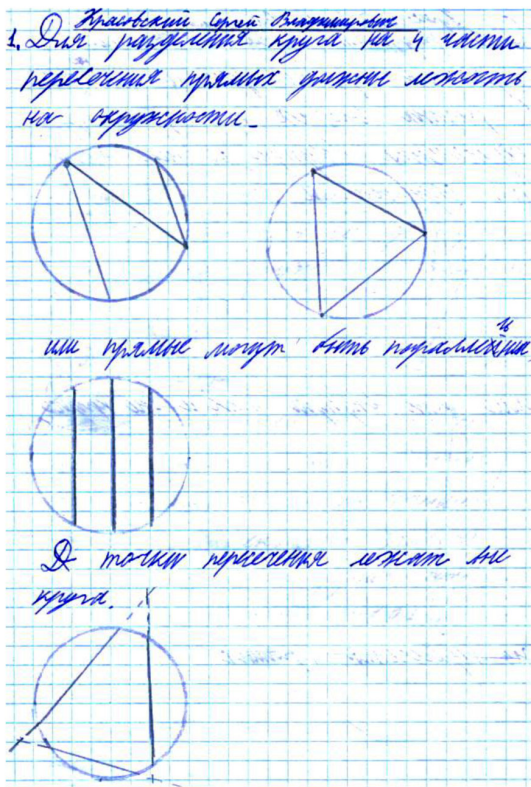 Красовский Сергей Владимирович
1. Для разделения круга на 4 части
пересечения прямых должны лежать
на окружности.
или прямые могут быть параллельны
точки пересечения лежат вне
круга.